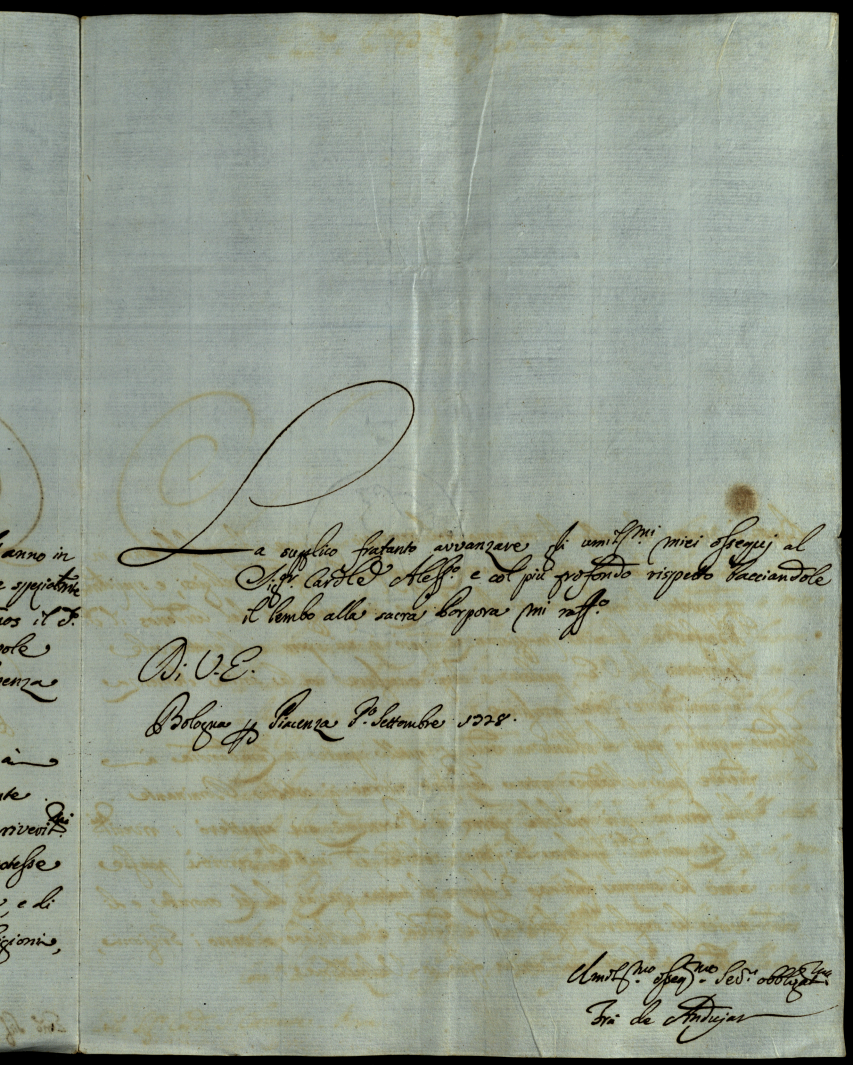 anno in
e
nos il P.
vole
enza
à
nte
riverit.mi
otesse
, e di
igioni,
La supplico fratanto avvanzare gli umiliss.mi miei ossequj al
Sig.r Card.le Aless.o e col più profondo rispetto bacciandole
il lembo alla sacra Porpora mi raff.o
Di V. E.
Bologna Piacenza P.o Settembre 1728.
Umiliss.mo osseq.mo Ser.r obbligat.mo
Fra de Andujar